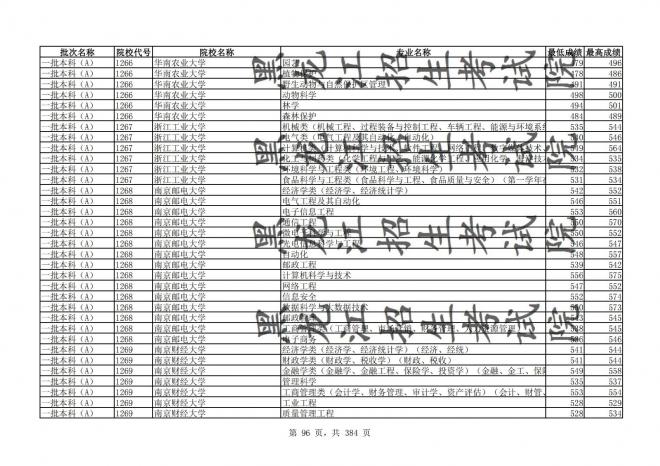 批次名称 院校代号 院校名称 专业名称 最低成绩 最高成绩
一批本科（A） 1266 华南农业大学 园艺 479 496
一批本科（A） 1266 华南农业大学 植物保护 478 486
一批本科（A） 1266 华南农业大学 野生动物与自然保护区管理 491 491
一批本科（A） 1266 华南农业大学 动物科学 498 500
一批本科（A） 1266 华南农业大学 林学 494 501
一批本科（A） 1266 华南农业大学 森林保护 484 489
一批本科（A） 1267 浙江工业大学 机械类（机械工程、过程装备与控制工程、车辆工程、能源与环境系统 535 544
一批本科（A） 1267 浙江工业大学 电气类（电气工程及其自动化、自动化） 540 546
一批本科（A） 1267 浙江工业大学 564
一批本科（A） 1267 浙江工业大学 534 535
一批本科（A） 1267 浙江工业大学 环境科学与工程类（环境工程、环境科学） 532 538
一批本科（A） 1267 浙江工业大学 食品科学与工程类（食品科学与工程、食品质量与安全）（第一学年在 531 534
一批本科（A） 1268 南京邮电大学 经济学类（经济学、经济统计学） 542 552
一批本科（A） 1268 南京邮电大学 电气工程及其自动化 546 551
一批本科（A） 1268 南京邮电大学 电子信息工程 553 560
一批本科（A） 1268 南京邮电大学 通信工程 550 570
一批本科（A） 1268 南京邮电大学 微电子科学与工程 550 552
一批本科（A） 1268 南京邮电大学 光电信息科学与工程 546 547
一批本科（A） 1268 南京邮电大学 自动化 548 557
一批本科（A） 1268 南京邮电大学 邮政工程 539 542
一批本科（A） 1268 南京邮电大学 计算机科学与技术 556 575
一批本科（A） 1268 南京邮电大学 网络工程 552 555
一批本科（A） 1268 南京邮电大学 信息安全 552 574
一批本科（A） 1268 南京邮电大学 数据科学与大数据技术 573
一批本科（A） 1268 南京邮电大学 邮政管理 545
一批本科（A） 1268 南京邮电大学 545
一批本科（A） 1268 南京邮电大学 电子商务 546
一批本科（A） 1269 南京财经大学 经济学类（经济学、经济统计学）（经济、经统） 541 544
一批本科（A） 1269 南京财经大学 财政学类（财政学、税收学）（财政、税收） 541 544
一批本科（A） 1269 南京财经大学 金融学类（金融学、金融工程、保险学、投资学）（金融、金工、保险 549 558
一批本科（A） 1269 南京财经大学 管理科学 535 537
一批本科（A） 1269 南京财经大学 工商管理类（会计学、财务管理、审计学、资产评估）（会计、财管、 553 554
一批本科（A） 1269 南京财经大学 工业工程 528 529
一批本科（A） 1269 南京财经大学 质量管理工程 528 534
黑龙江招生考试院
黑龙江招生考试院
第 96 页，共 384 页